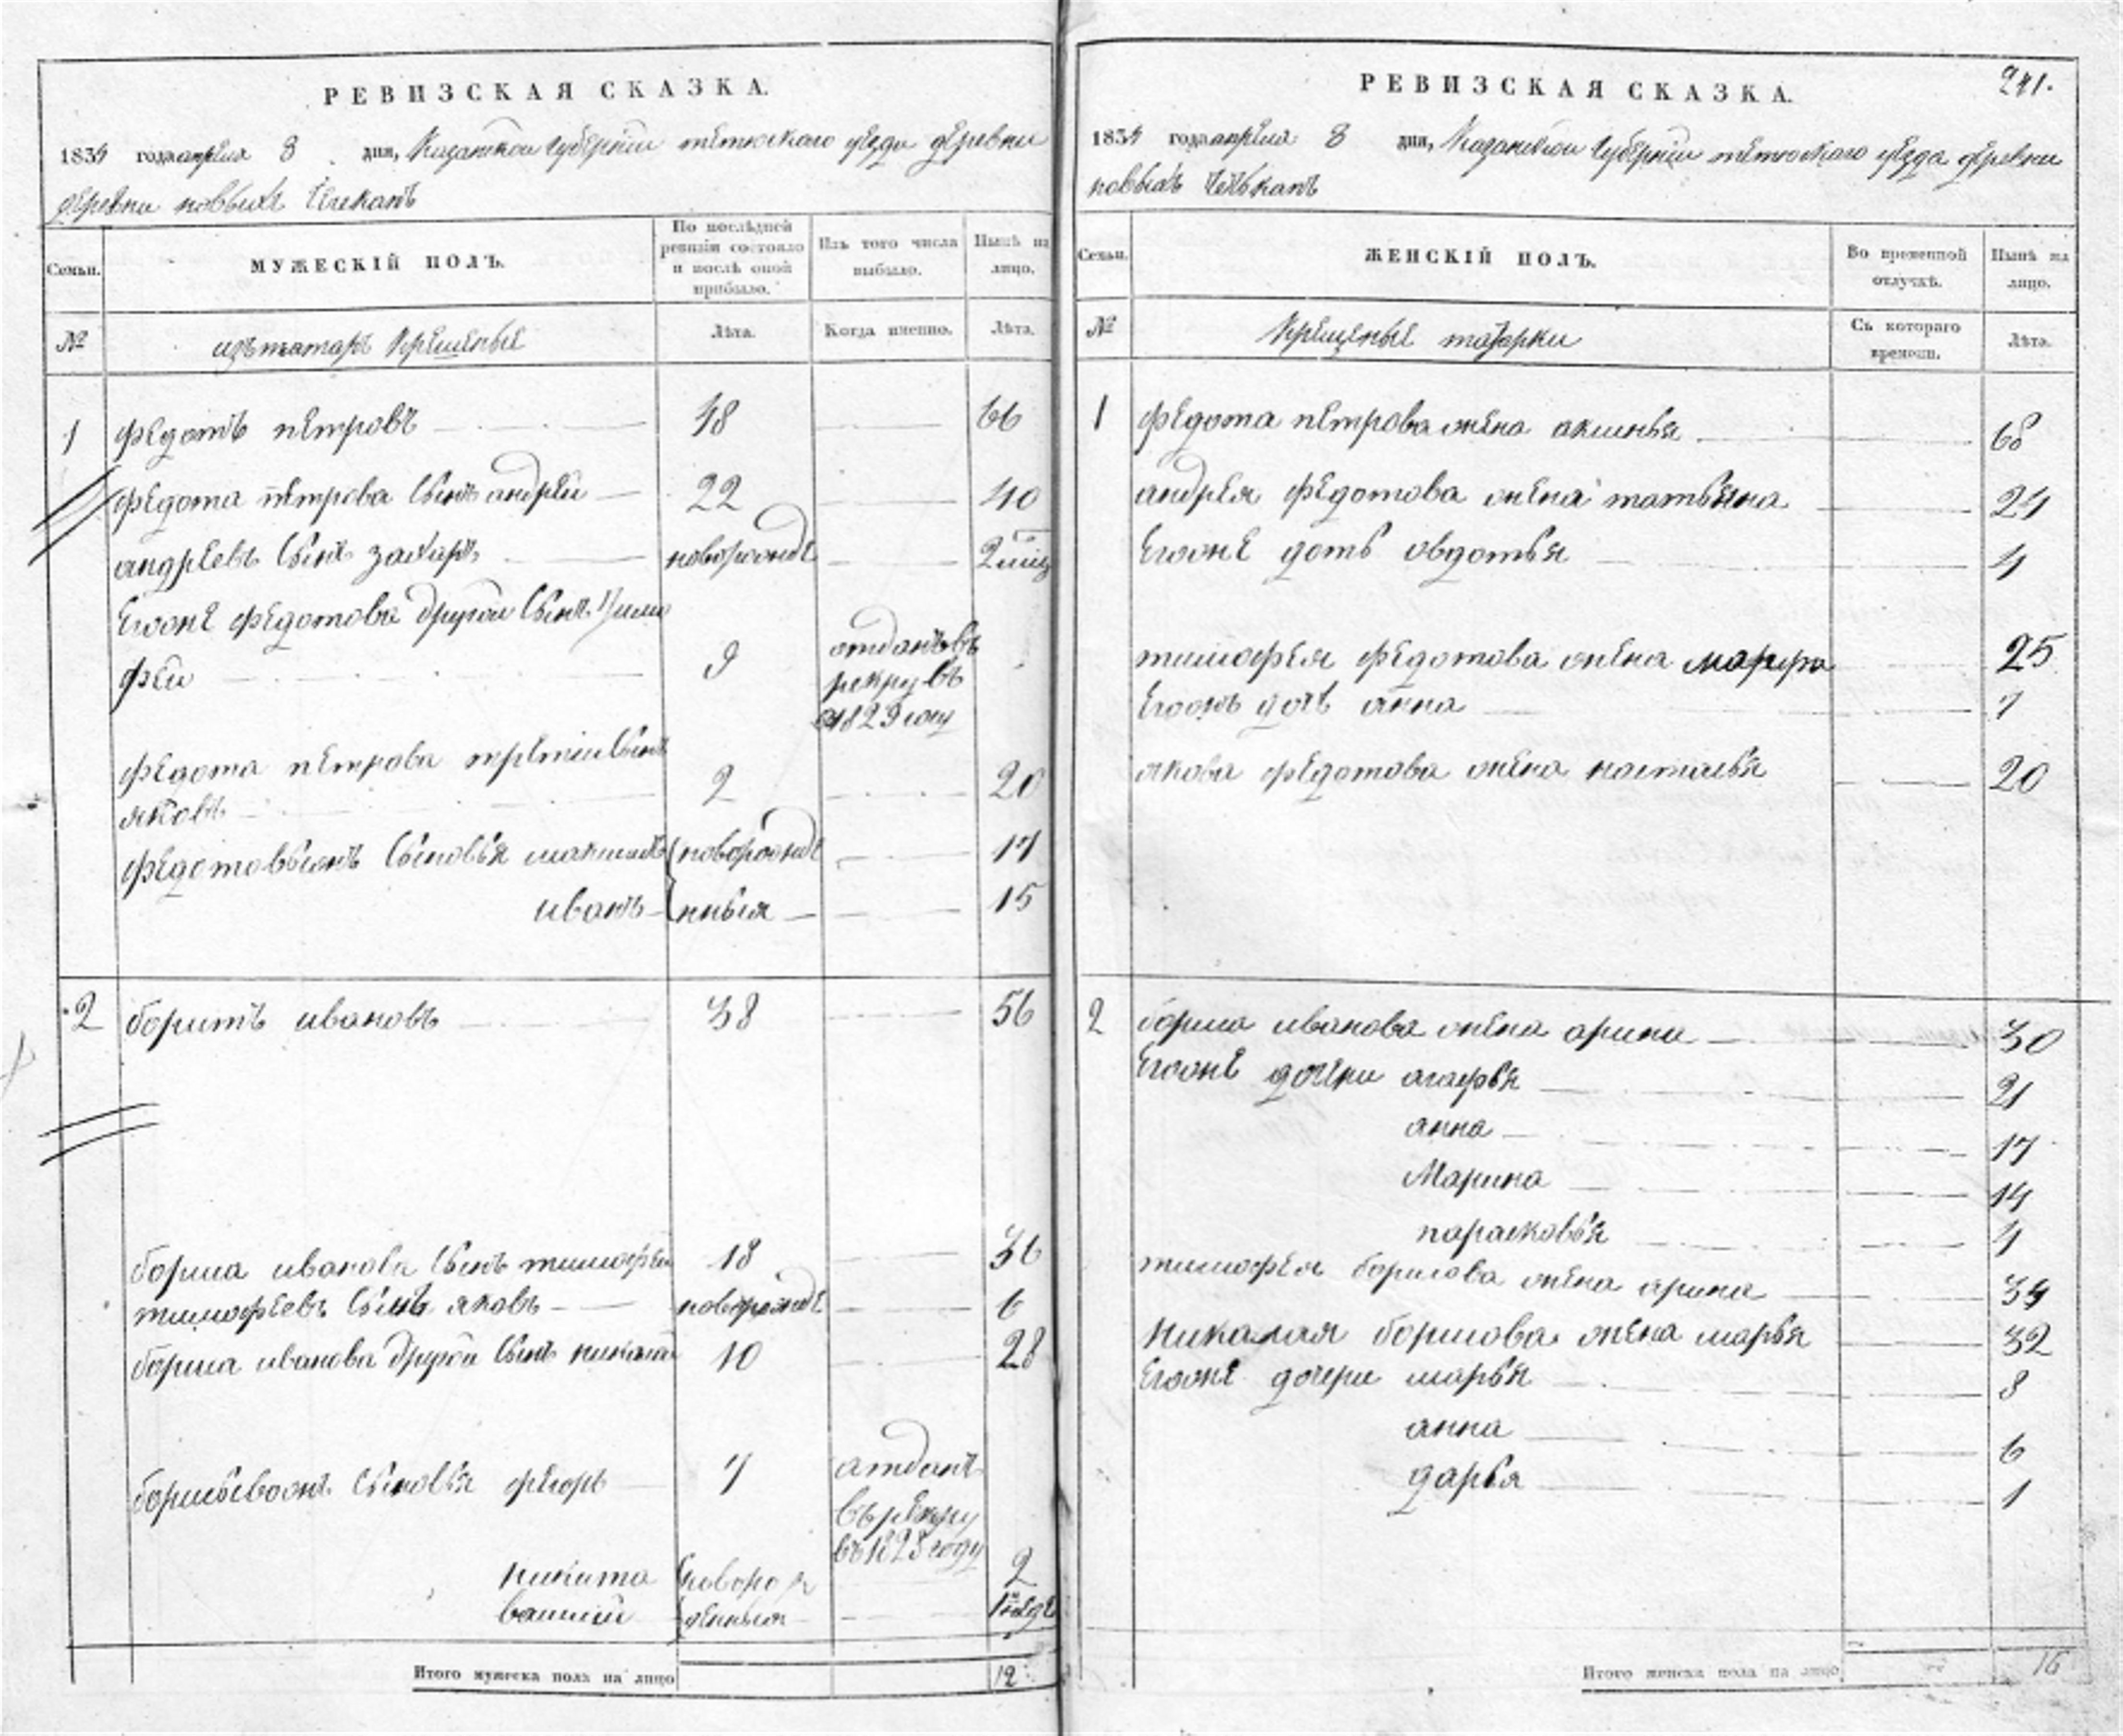 РЕВИЗСКАЯ СКАЗКА.
1834 года апреля 8 дня, Казанской Губернии тетюского уезда деревни
деревни новыхъ Чекапъ
Семьи. МУЖЕСКІЙ ПОЛЪ. По послѣдней ревизіи состояло и послѣ оной прибыло. Изъ того числа выбыло. Нынѣ на лицо.
№ изъ татаръ Крещеные Лѣта. Когда именно. Лѣта.
1 федотъ петровъ 48 66
федота петрова сынъ андрей 22 40
андреевъ сынъ захаръ новорожде 2
Егоже федотова другой сынъ Тимо
фей 9 отданъ въ
рекрувъ
1829 году
федота петрова третий сынъ
яковъ 2 20
федотовыжъ сыновья максимъ новорожде 17
иванъ нныя 15
2 борисъ ивановъ 38 56
бориса иванова сынъ тимофей 18 36
тимофеевъ сынъ яковъ новорожде 6
бориса иванова другой сынъ николай 10 28
сыновья федоръ 7 атданъ
въ рекру
въ 1828 году
никита новорож 2
василий денныя 1 неде
Итого мужеска пола на лицо 12
РЕВИЗСКАЯ СКАЗКА. 241.
1834 года апреля 8 дня, Казанской Губернии тетюского уезда деревни
новыхъ Чекапъ
Семьи. ЖЕНСКІЙ ПОЛЪ. Во временной отлучкѣ. Нынѣ на лицо.
№ Крещеные татарки Съ котораго времени. Лѣта.
1 федота петрова жена аксинья 68
андрея федотова жена татьяна 24
Егоже дотъ овдотья 4
тимофея федотова жена марфа 25
Егожъ дочь анна 7
якова федотова жена настасья 20
2 бориса иванова жена арина 30
Егоже дочери агафья 21
анна 17
Марина 14
парасковья 4
тимофея борисова жена арина 34
Никалая борисова жена марья 32
Егоже дочери марья 8
анна 6
дарья 1
Итого женска пола на лицо 16